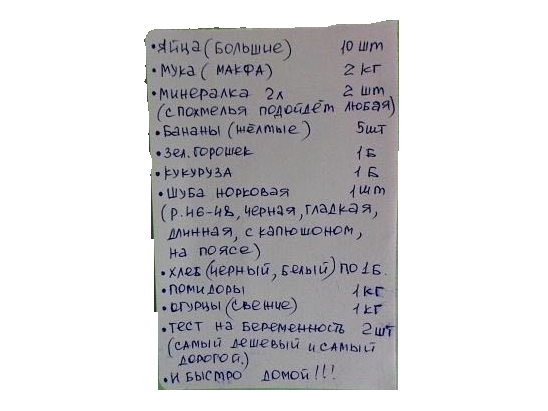 • Яйца (большие) 10 шт
• мука (МАКФА) 2 кг
• минералка 2л 2 шт
(с похмелья подойдёт любая)
• Бананы (жёлтые) 5шт
• зел. горошек 1 Б
• кукуруза 1 Б
• шуба норковая 1шт
(р. 46-48, черная, гладкая,
длинная, с капюшоном,
на поясе)
• хлеб (черный, белый) по 1 Б.
• помидоры 1 кг
• огурцы (свежие) 1 кг
• тест на беременность 2 шт
(самый дешевый и самый
дорогой.)
• и быстро домой!!!